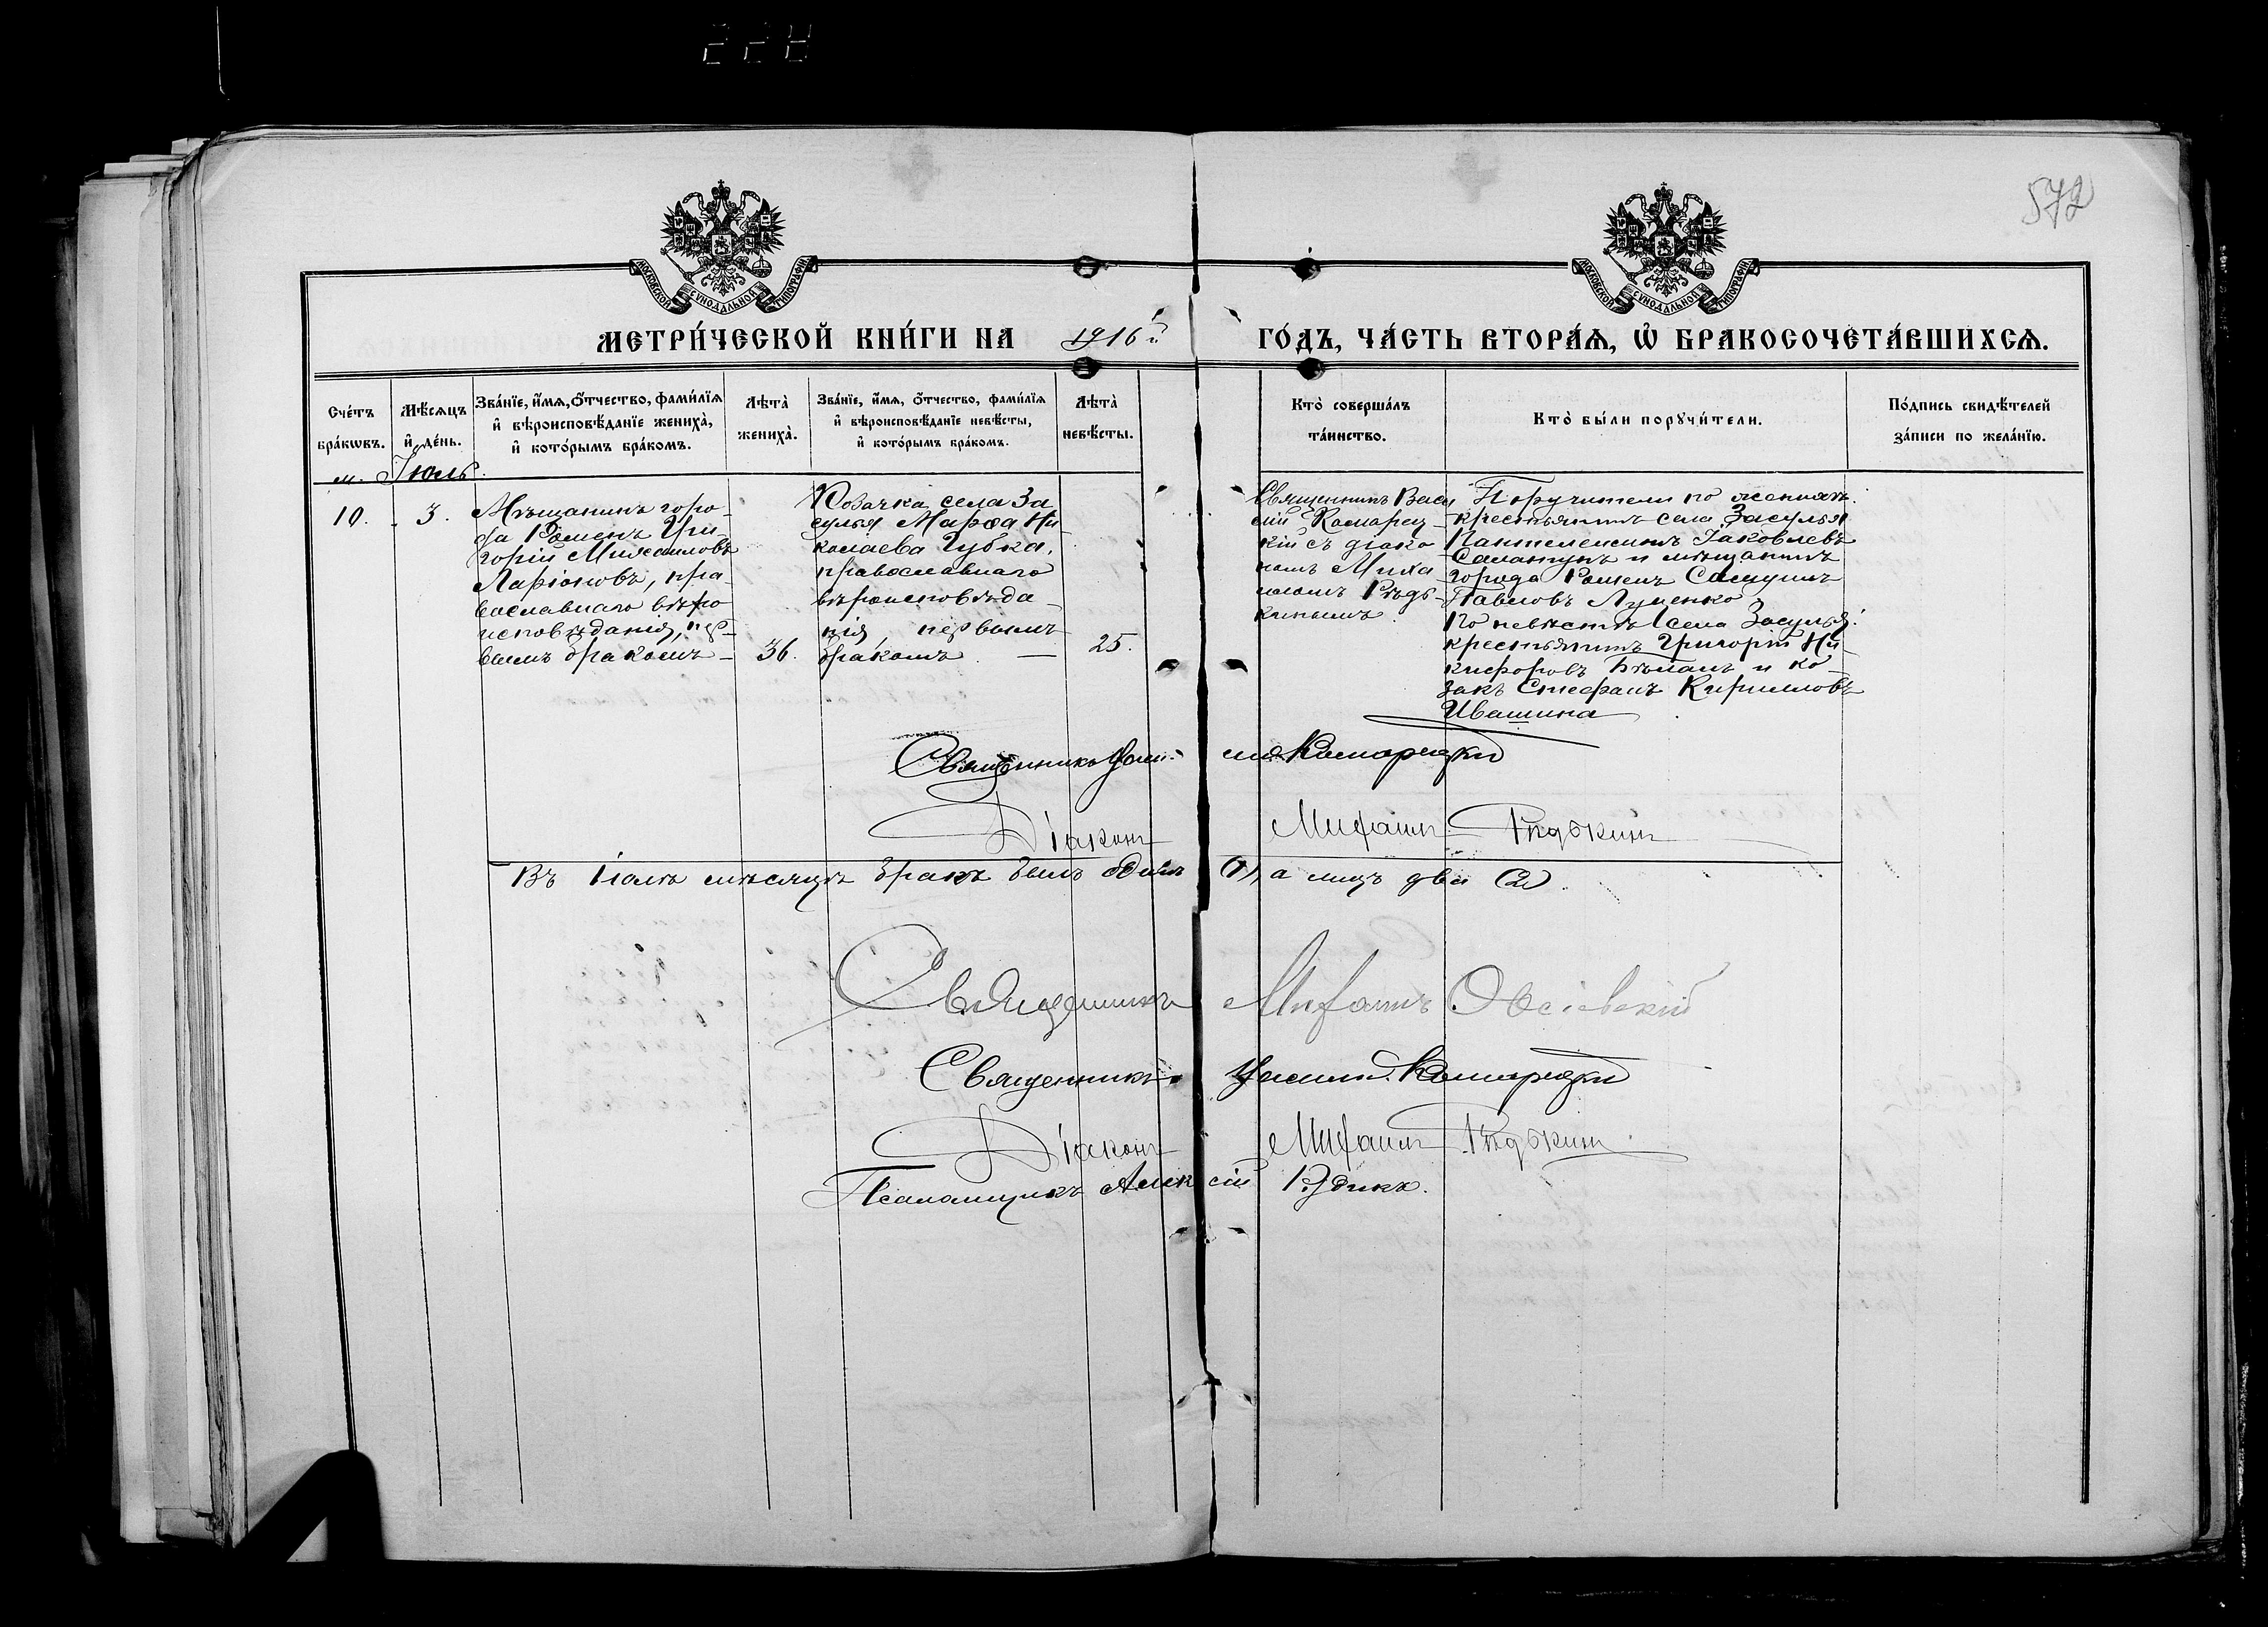 572
МОСКОВСКОЙ СѴНОДАЛЬНОЙ ТИПОГРАФІИ
МОСКОВСКОЙ СѴНОДАЛЬНОЙ ТИПОГРАФІИ
МЕТРИ́ЧЕСКОЙ КНИ́ГИ НА 1916й ГО́ДЪ, ЧА́СТЬ ВТОРА́Я, Ѡ҆ БРАКОСОЧЕТА́ВШИХСЯ.
Сче́тъ бра́кѡвъ.
Мѣ́сяцъ и҆ де́нь.
Зва́нїе, и҆́мя, ѻ҆́тчество, фами́лїя
и҆ вѣроисповѣ́данїе жениха̀,
и҆ кото́рымъ бра́комъ.
Лѣта̀ жениха̀.
Зва́нїе, и҆́мя, ѻ҆́тчество, фами́лїя
и҆ вѣроисповѣ́данїе невѣ́сты,
и҆ кото́рымъ бра́комъ.
Лѣта̀ невѣ́сты.
Кто̀ соверша́лъ
та́инство.
Кто̀ бы́ли порꙋчи́тели.
По́дпись свидѣ́телей
за́писи по жела́нїю.
м. Іюль.
10.
3.
Мѣщанинъ горо-
да Роменъ Гри-
горій Михаиловъ
Ларіоновъ, пра-
вославнаго вѣро
исповѣданія, пер-
вымъ бракомъ –
36.
Козачка села За
сулья Марѳа Ни
колаева Губка,
православнаго
вѣроисповѣда-
нія, первымъ
бракомъ. —
25.
Священникъ Васи
лій Комарец-
кій съ діако
номъ Миха
иломъ Рѣдь-
кинымъ.
Поручители по женихѣ.
крестьянинъ села Засулья
Пантелеимонъ Іаковлевъ
и мѣщанинъ
города Роменъ
Павловъ Луценко
По невѣстѣ села Засулья:
крестьянинъ Григорій Ни-
кифоровъ и ко-
закъ Стефанъ Кирилловъ
Ивашина
Священникъ Васи-лій Комарецкій
Діаконъ Михаилъ Рѣдькинъ
Въ Іюлѣ мѣсяцѣ бракъ былъ одинъ (1), а лицъ два (2).
Священникъ Михаилъ Овсіевскій
Священникъ Василій Комарецкій
Діаконъ Михаилъ Рѣдькинъ
Псаломщикъ Алексій